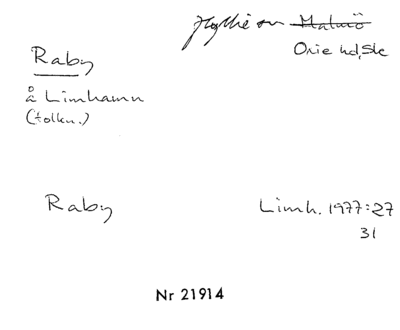 Hyllie sn Malmö
Oxie hd, Sk
Raby
å Limhamn
(tolkn.)
Raby
Limh. 1977:27
31
Nr 21914